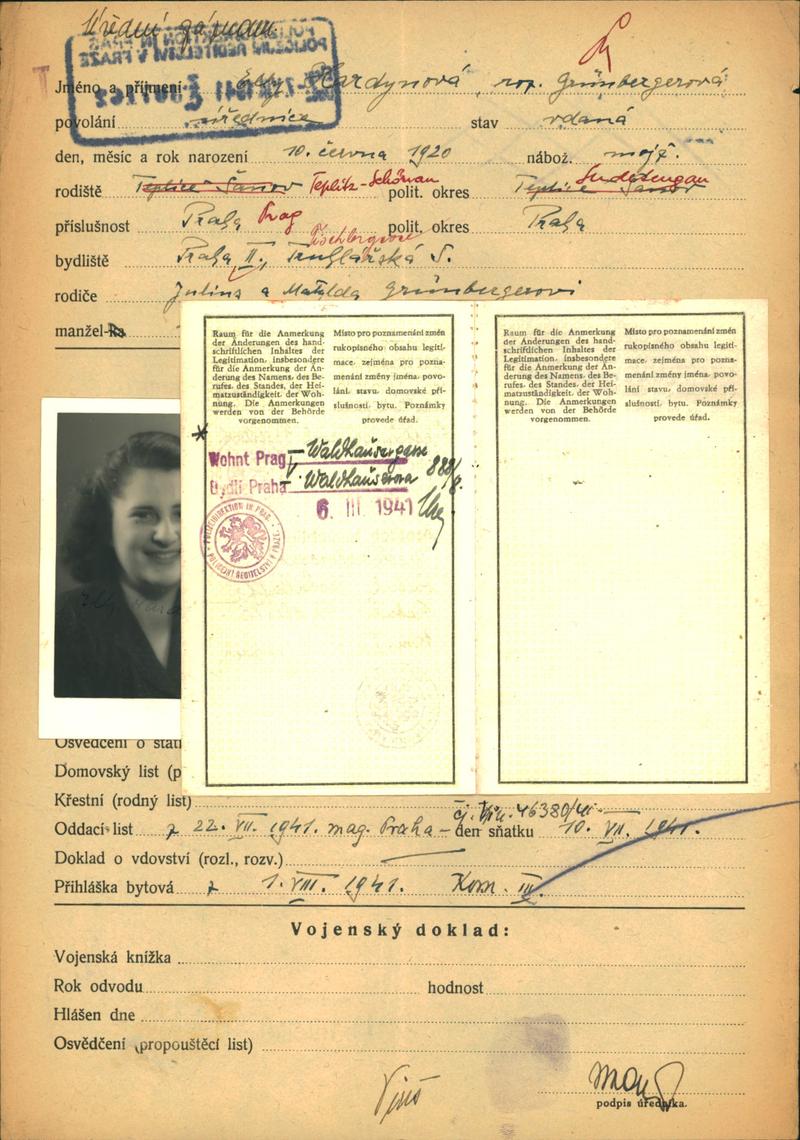 Úřední záznam.
POLICEJNÍ ŘEDITELSTVÍ V PRAZE
Jméno a příjmení Elly Hardynová, roz. Grünbergerová
povolání úřednice stav vdaná
den, měsíc a rok narození 10. června 1920 nábož. mojž.
rodiště Teplice Šanov Teplitz-Schönau polit. okres Teplice Šanov Sudetengau
příslušnost Praha Prag polit. okres Praha
Tischlergasse
bydliště Praha II., Truhlářská 5.
rodiče Julius a Matylda Grünbergerovi
manžel-ka
Raum für die Anmerkung
der Änderungen des hand-
schriftlichen Inhaltes der
Legitimation, insbesondere
für die Anmerkung der Än-
derung des Namens, des Be-
rufes, des Standes, der Hei-
matzuständigkeit, der Woh-
nung. Die Anmerkungen
werden von der Behörde
vorgenommen.
Místo pro poznamenání změn
rukopisného obsahu legiti-
mace, zejména pro pozna-
menání změny jména, povo-
lání, stavu, domovské pří-
slušnosti, bytu. Poznámky
provede úřad.
Wohnt Prag V Waldhausergasse
Bydlí Praha Waldhauserova 888/8.
6. III. 1941
POLIZEIDIREKTION IN PRAG
POLICEJNÍ ŘEDITELSTVÍ V PRAZE
Raum für die Anmerkung
der Änderungen des hand-
schriftlichen Inhaltes der
Legitimation, insbesondere
für die Anmerkung der Än-
derung des Namens, des Be-
rufes, des Standes, der Hei-
matzuständigkeit, der Woh-
nung. Die Anmerkungen
werden von der Behörde
vorgenommen.
Místo pro poznamenání změn
rukopisného obsahu legiti-
mace, zejména pro pozna-
menání změny jména, povo-
lání, stavu, domovské pří-
slušnosti, bytu. Poznámky
provede úřad.
Osvědčení o stát
Domovský list (p
Křestní (rodný list)
46380/41
Oddací list z 22. VII. 1941. mag. Praha – den sňatku 10. VII. 1941.
Doklad o vdovství (rozl., rozv.)
Přihláška bytová z 1. VIII. 1941. Kom. III.
Vojenský doklad:
Vojenská knížka
Rok odvodu hodnost
Hlášen dne
Osvědčení (propouštěcí list)
podpis úředníka.